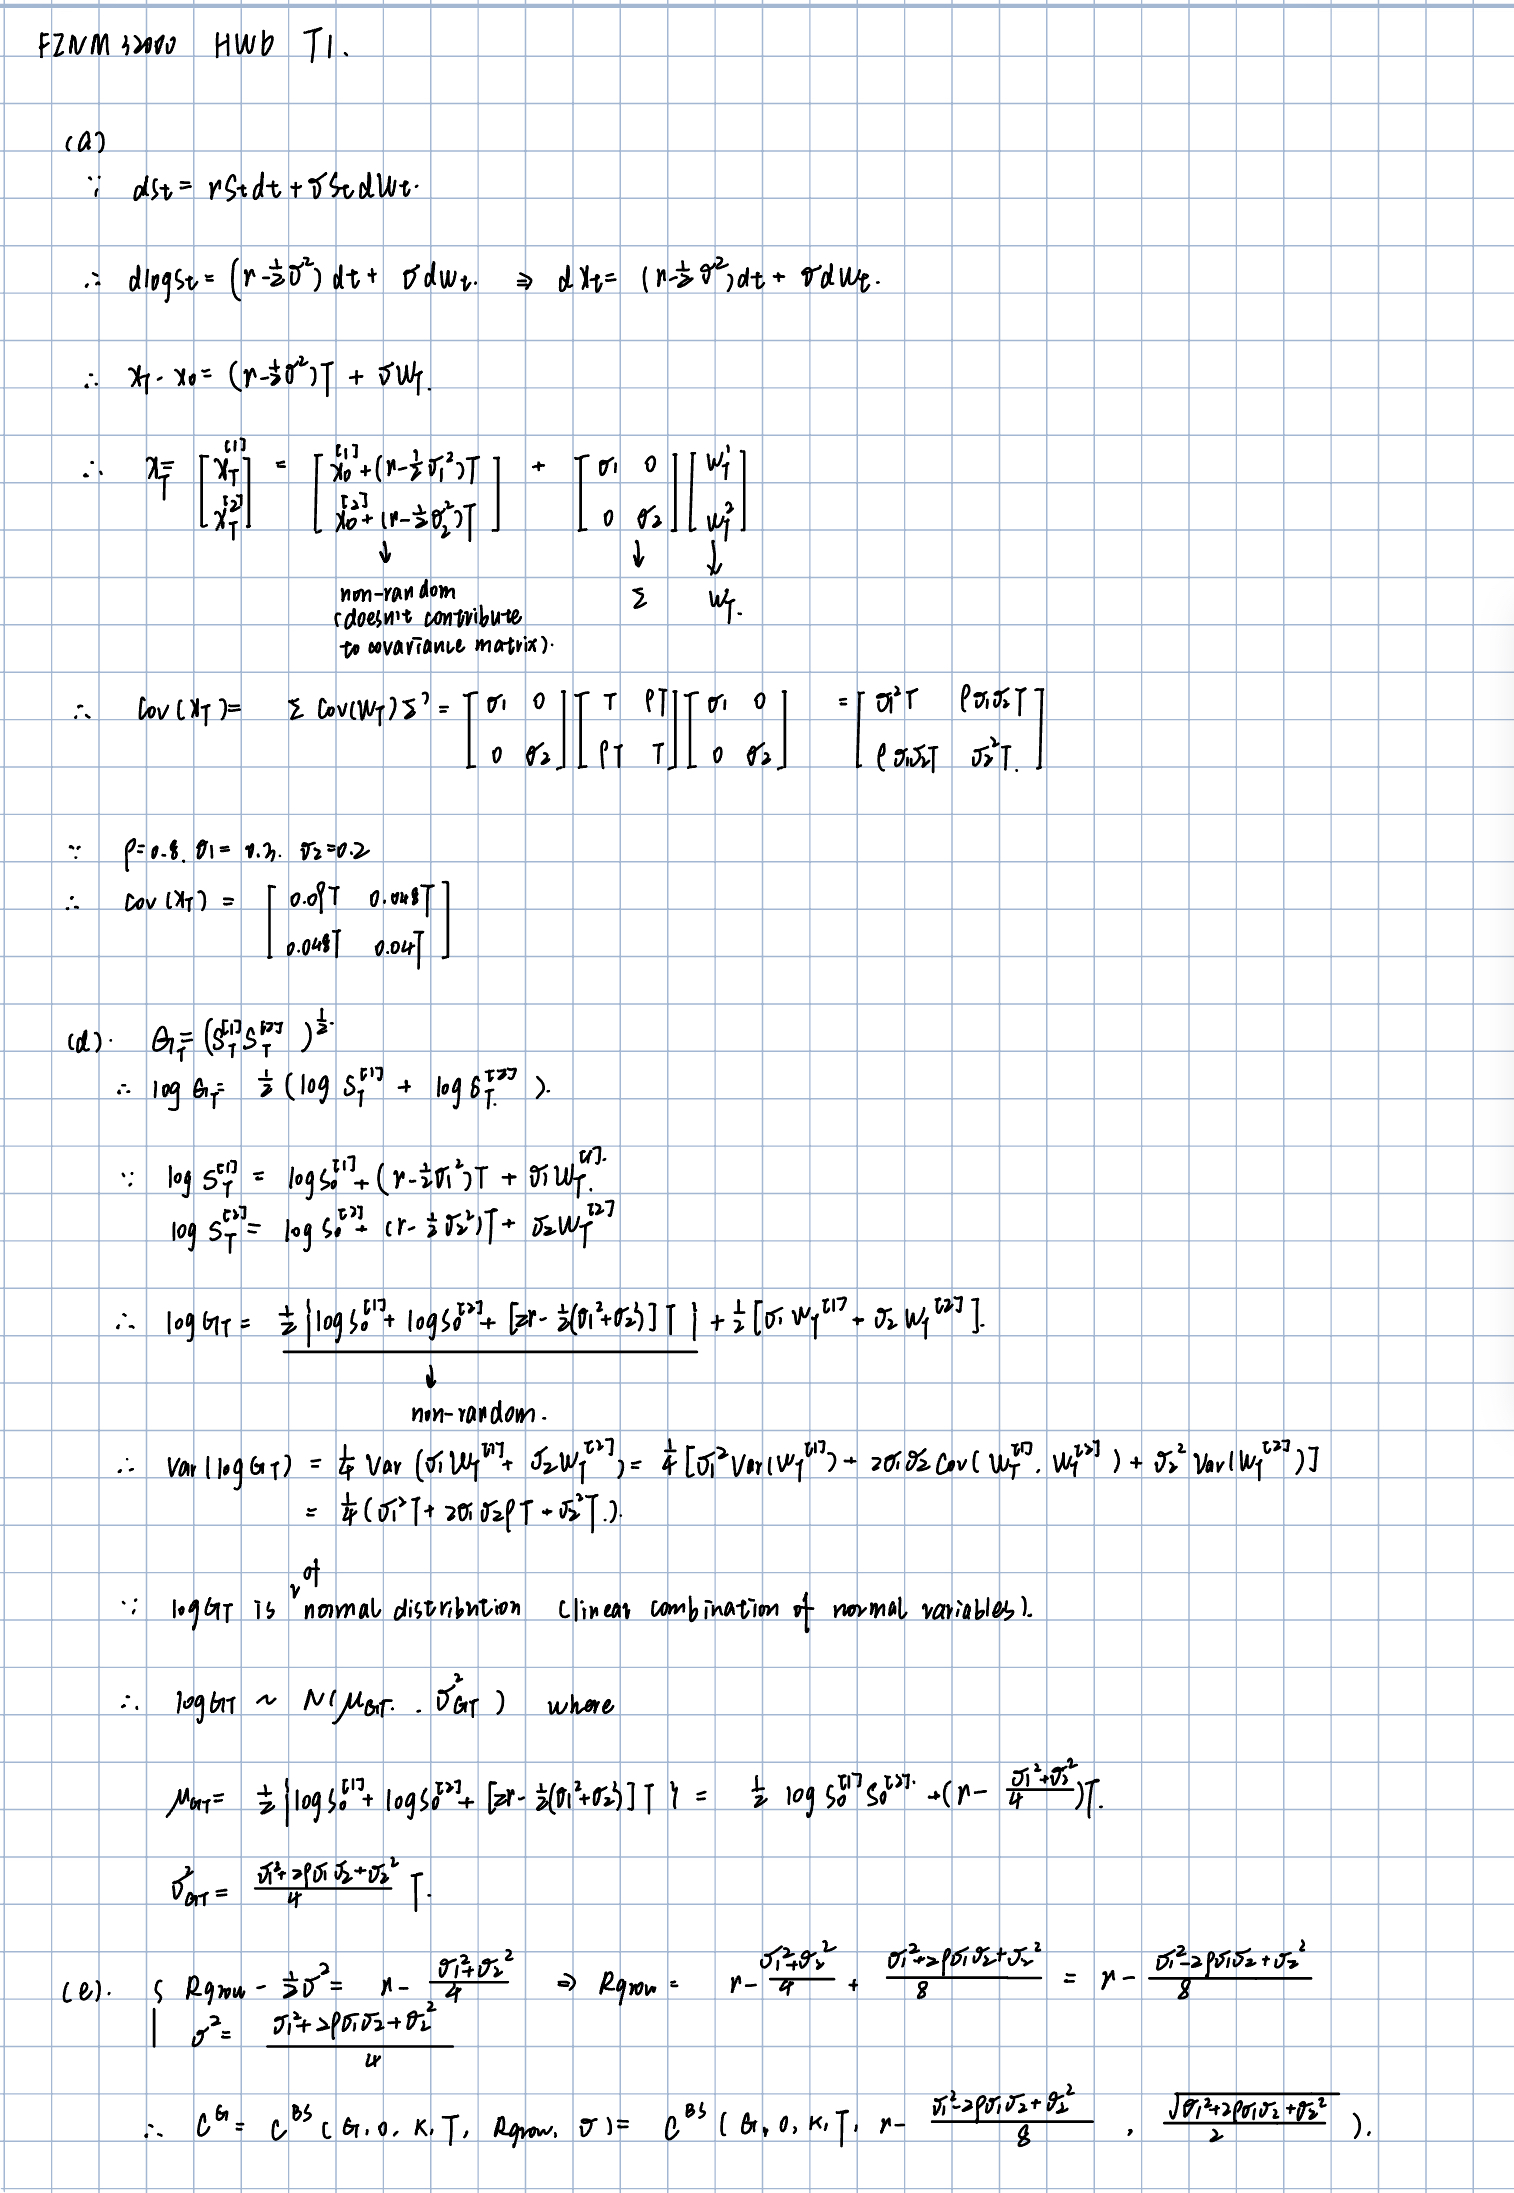 FINM 32000 HW6 T1.
(a)
∵ dSt = rStdt + σStdWt.
∴ dlogSt = (r-½σ²)dt + σdWt. ⇒ dXt = (r-½σ²)dt + σdWt.
∴ XT - X0 = (r-½σ²)T + σWT.
∴ XT = [XT^[1] ; XT^[2]] = [X0^[1] + (r-½σ1²)T ; X0^[2] + (r-½σ2²)T] + [σ1 0 ; 0 σ2][WT^1 ; WT^2]
↓ ↓ ↓
non-random Σ WT.
(doesn't contribute
to covariance matrix).
∴ Cov(XT) = Σ Cov(WT) Σ' = [σ1 0 ; 0 σ2][T ρT ; ρT T][σ1 0 ; 0 σ2] = [σ1²T ρσ1σ2T ; ρσ1σ2T σ2²T.]
∵ ρ=0.8. σ1=0.3. σ2=0.2
∴ Cov(XT) = [0.09T 0.048T ; 0.048T 0.04T]
(d). GT = (ST^[1] ST^[2])^½.
∴ log GT = ½(log ST^[1] + log ST^[2]).
∵ log ST^[1] = logS0^[1] + (r-½σ1²)T + σ1WT^[1].
log ST^[2] = logS0^[2] + (r-½σ2²)T + σ2WT^[2]
∴ logGT = ½{logS0^[1] + logS0^[2] + [2r-½(σ1²+σ2²)]T} + ½[σ1WT^[1] + σ2WT^[2]].
↓
non-random.
∴ Var(logGT) = ¼ Var(σ1WT^[1] + σ2WT^[2]) = ¼[σ1²Var(WT^[1]) + 2σ1σ2Cov(WT^[1], WT^[2]) + σ2²Var(WT^[2])]
= ¼(σ1²T + 2σ1σ2ρT + σ2²T.).
∵ logGT is of normal distribution (linear combination of normal variables).
∴ logGT ~ N(μGT. , σ²GT) where
μGT = ½{logS0^[1] + logS0^[2] + [2r-½(σ1²+σ2²)]T} = ½ log S0^[1]S0^[2]. + (r - (σ1²+σ2²)/4)T.
σ²GT = (σ1²+2ρσ1σ2+σ2²)/4 T.
(e). { Rgrow - ½σ² = r - (σ1²+σ2²)/4 ⇒ Rgrow = r - (σ1²+σ2²)/4 + (σ1²+2ρσ1σ2+σ2²)/8 = r - (σ1²-2ρσ1σ2+σ2²)/8
σ² = (σ1²+2ρσ1σ2+σ2²)/4
∴ C^G = C^BS(G, 0, K, T, Rgrow, σ) = C^BS(G, 0, K, T, r - (σ1²-2ρσ1σ2+σ2²)/8 , √(σ1²+2ρσ1σ2+σ2²)/2).